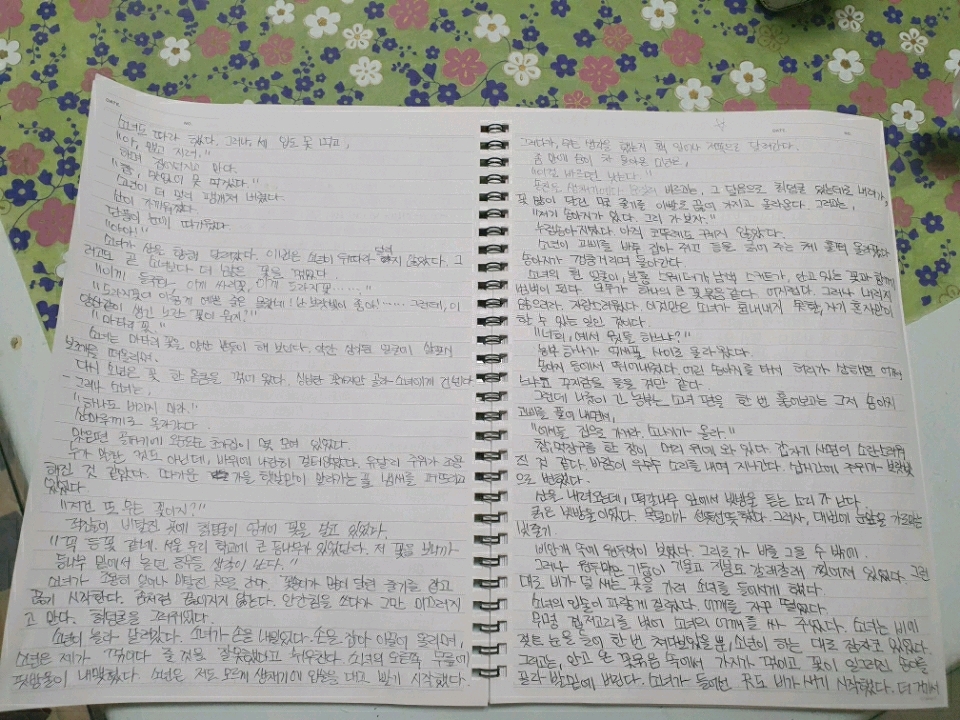 소녀도 따라 했다. 그러나, 세 입도 못 먹고,
"아, 맵고 지려."
하며 집어던지고 만다.
"참, 맛없어 못 먹겠다."
소년이 더 멀리 팽개쳐 버렸다.
산이 가까워졌다.
단풍이 눈에 따가웠다
"야아!"
소녀가 산을 향해 달려갔다. 이번은 소년이 뒤따라 달리지 않았다. 그
러고도 곧 소녀보다 더 많은 꽃을 꺾었다.
"이게 들국화, 이게 싸리꽃, 이게 도라지꽃……."
"도라지꽃이 이렇게 예쁜 줄은 몰랐네! 난 보랏빛이 좋아!…… 그런데, 이
양산같이 생긴 노란 꽃이 뭐지?"
"마타리꽃."
소녀는 마타리 꽃을 양산 받듯이 해 보인다. 약간 상기된 얼굴에 살포시
보조개를 떠올리며.
다시 소년은 꽃 한 옴큼을 꺾어 왔다. 싱싱한 꽃가지만 골라 소녀에게 건넨다
그러나 소녀는,
"하나도 버리지 마라."
산마루께로 올라갔다.
맞은편 골짜기에 오순도순 초가집이 몇 모여 있었다.
누가 말한 것도 아닌데, 바위에 나란히 걸터앉았다. 유달리 주위가 조용
해진 것 같았다. 따가운 가을 햇살만이 말라가는 풀 냄새를 퍼뜨리고
있었다.
"저건 또 무슨 꽃이지?"
적잖이 비탈진 곳에 칡덩굴이 엉키어 꽃을 달고 있었다.
"꼭 등꽃 같네. 서울 우리 학교에 큰 등나무가 있었단다. 저 꽃을 보니까
등나무 밑에서 놀던 동무들 생각이 난다."
소녀가 조용히 일어나 비탈진 곳으로 간다. 꽃송이가 많이 달린 줄기를 잡고
끊기 시작한다. 좀처럼 끊어지지 않는다. 안간힘을 쓰다가 그만 미끄러지
고 만다. 칡덩굴을 그러쥐었다.
소년이 놀라 달려갔다. 소녀가 손을 내밀었다. 손을 잡아 이끌어 올리며,
소년은 제가 꺾어다 줄 것을 잘못했다고 뉘우친다. 소녀의 오른쪽 무릎에
핏방울이 내맺혔다. 소년은 저도 모르게 생채기에 입술을 대고 빨기 시작했다.
그러다가, 무슨 생각을 했는지 홱 일어나 저쪽으로 달려간다.
좀 만에 숨이 차 돌아온 소년은,
"이걸 바르면 낫는다."
송진을 생채기에다 문질러 바르고는, 그 달음으로 칡덩굴 있는데로 내려가,
꽃 많이 달린 몇 줄기를 이빨로 끊어 가지고 올라온다. 그리고는,
"저기 송아지가 있다. 그리 가 보자."
누렁송아지였다. 아직 코뚜레도 꿰지 않았다.
소년이 고삐를 바투 잡아 쥐고 등을 긁어 주는 체 훌쩍 올라탔다
송아지가 껑충거리며 돌아간다
소녀의 흰 얼굴이, 분홍 스웨터가, 남색 스커트가, 안고 있는 꽃과 함께
범벅이 된다. 모두가 하나의 큰 꽃묶음 같다. 어지럽다. 그러나, 내리지
않으리라. 자랑스러웠다. 이것만은 소녀가 흉내내지 못할, 자기 혼자만이
할 수 있는 일인 것이다.
"너희, 예서 뭣들 하느냐?"
농부 하나가 억새풀 사이로 올라왔다.
송아지 등에서 뛰어내렸다. 어린 송아지를 타서 허리가 상하면 어쩌
느냐고 꾸지람을 들을 것만 같다.
그런데 나룻이 긴 농부는 소녀 편을 한 번 훑어보고는 그저 송아지
고삐를 풀어 내면서,
"어서들 집으로 가거라. 소나기가 올라."
참, 먹장구름 한 장이 머리 위에 와 있다. 갑자기 사면이 소란스러워
진 것 같다. 바람이 우수수 소리를 내며 지나간다. 삽시간에 주위가 보랏빛
으로 변했다.
산을 내려오는데, 떡갈나무 잎에서 빗방울 듣는 소리가 난다.
굵은 빗방울이었다. 목덜미가 선뜻선뜻했다. 그러자, 대번에 눈앞을 가로막는
빗줄기
비안개 속에 원두막이 보였다. 그리로 가 비를 그을 수 밖에.
그러나, 원두막은 기둥이 기울고 지붕도 갈래갈래 찢어져 있었다. 그런
대로 비가 덜 새는 곳을 가려 소녀를 들어서게 했다.
소녀의 입술이 파랗게 질렸다. 어깨를 자꾸 떨었다.
무명 겹저고리를 벗어 소녀의 어깨를 싸 주었다. 소녀는 비에
젖은 눈을 들어 한 번 쳐다보았을 뿐, 소년이 하는 대로 잠자코 있었다.
그리고는, 안고 온 꽃묶음 속에서 가지가 꺾이고 꽃이 일그러진 송이를
골라 발밑에 버린다. 소녀가 들어선 곳도 비가 새기 시작했다. 더 거기서